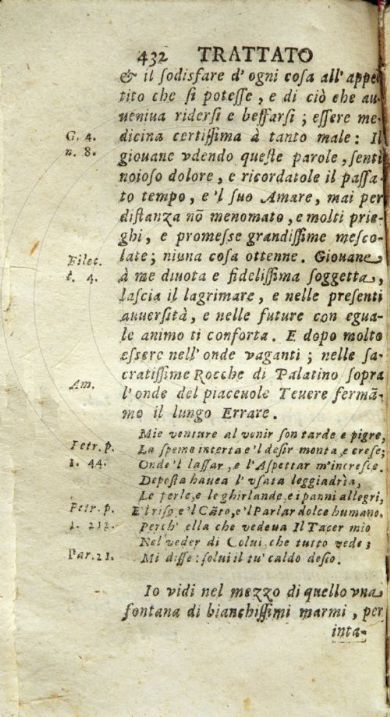 432 TRATTATO
& il sodisfare d'ogni cosa all'appe-
tito che si potesse, e di ciò che au-
ueniua ridersi e beffarsi; essere me-
G. 4. dicina certissima à tanto male: Il
n. 8. giouane vdendo queste parole, senti
noioso dolore, e ricordatole il passa-
to tempo, e'l suo Amare, mai per
distanza nō menomato, e molti prie-
ghi, e promesse grandissime mesco-
Filoc. late; niuna cosa ottenne. Giouane
t. 4. à me diuota e fidelissima soggetta,
lascia il lagrimare, e nelle presenti
auuersità, e nelle future con egua-
le animo ti conforta. E dopo molto
essere nell'onde vaganti; nelle sa-
Am. cratissime Rocche di Palatino sopra
l'onde del piaceuole Teuere fermā-
mo il lungo Errare.
Mie venture al venir son tarde e pigre,
Petr. p. La speme interta e'l desir monta e cresc;
1. 44. Onde'l lassar, e l'Aspettar m'incresce.
Deposta hauea l'vsata leggiadria,
Le perle, e le ghirlande, e i panni allegri,
Petr. p. E'l riso, e'l Cāto, e'l Parlar dolce humano.
1. 212. Perch' ella che vedeua Il Tacer mio
Nel veder di Colui, che tutto vede;
Par. 21. Mi disse: solui il tu' caldo desio.
Io vidi nel mezzo di quello vna
fontana di bianchissimi marmi, per
inta-